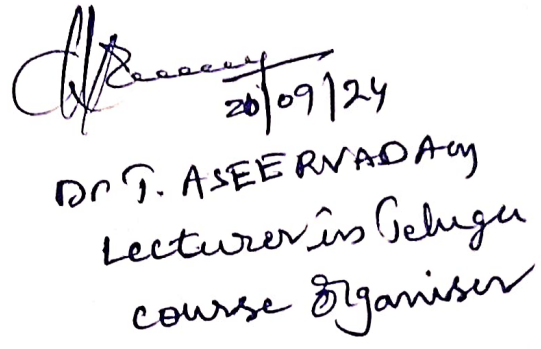 26/09/24
Dr T. ASEERVADAM
Lecturer in Telugu
course Organiser